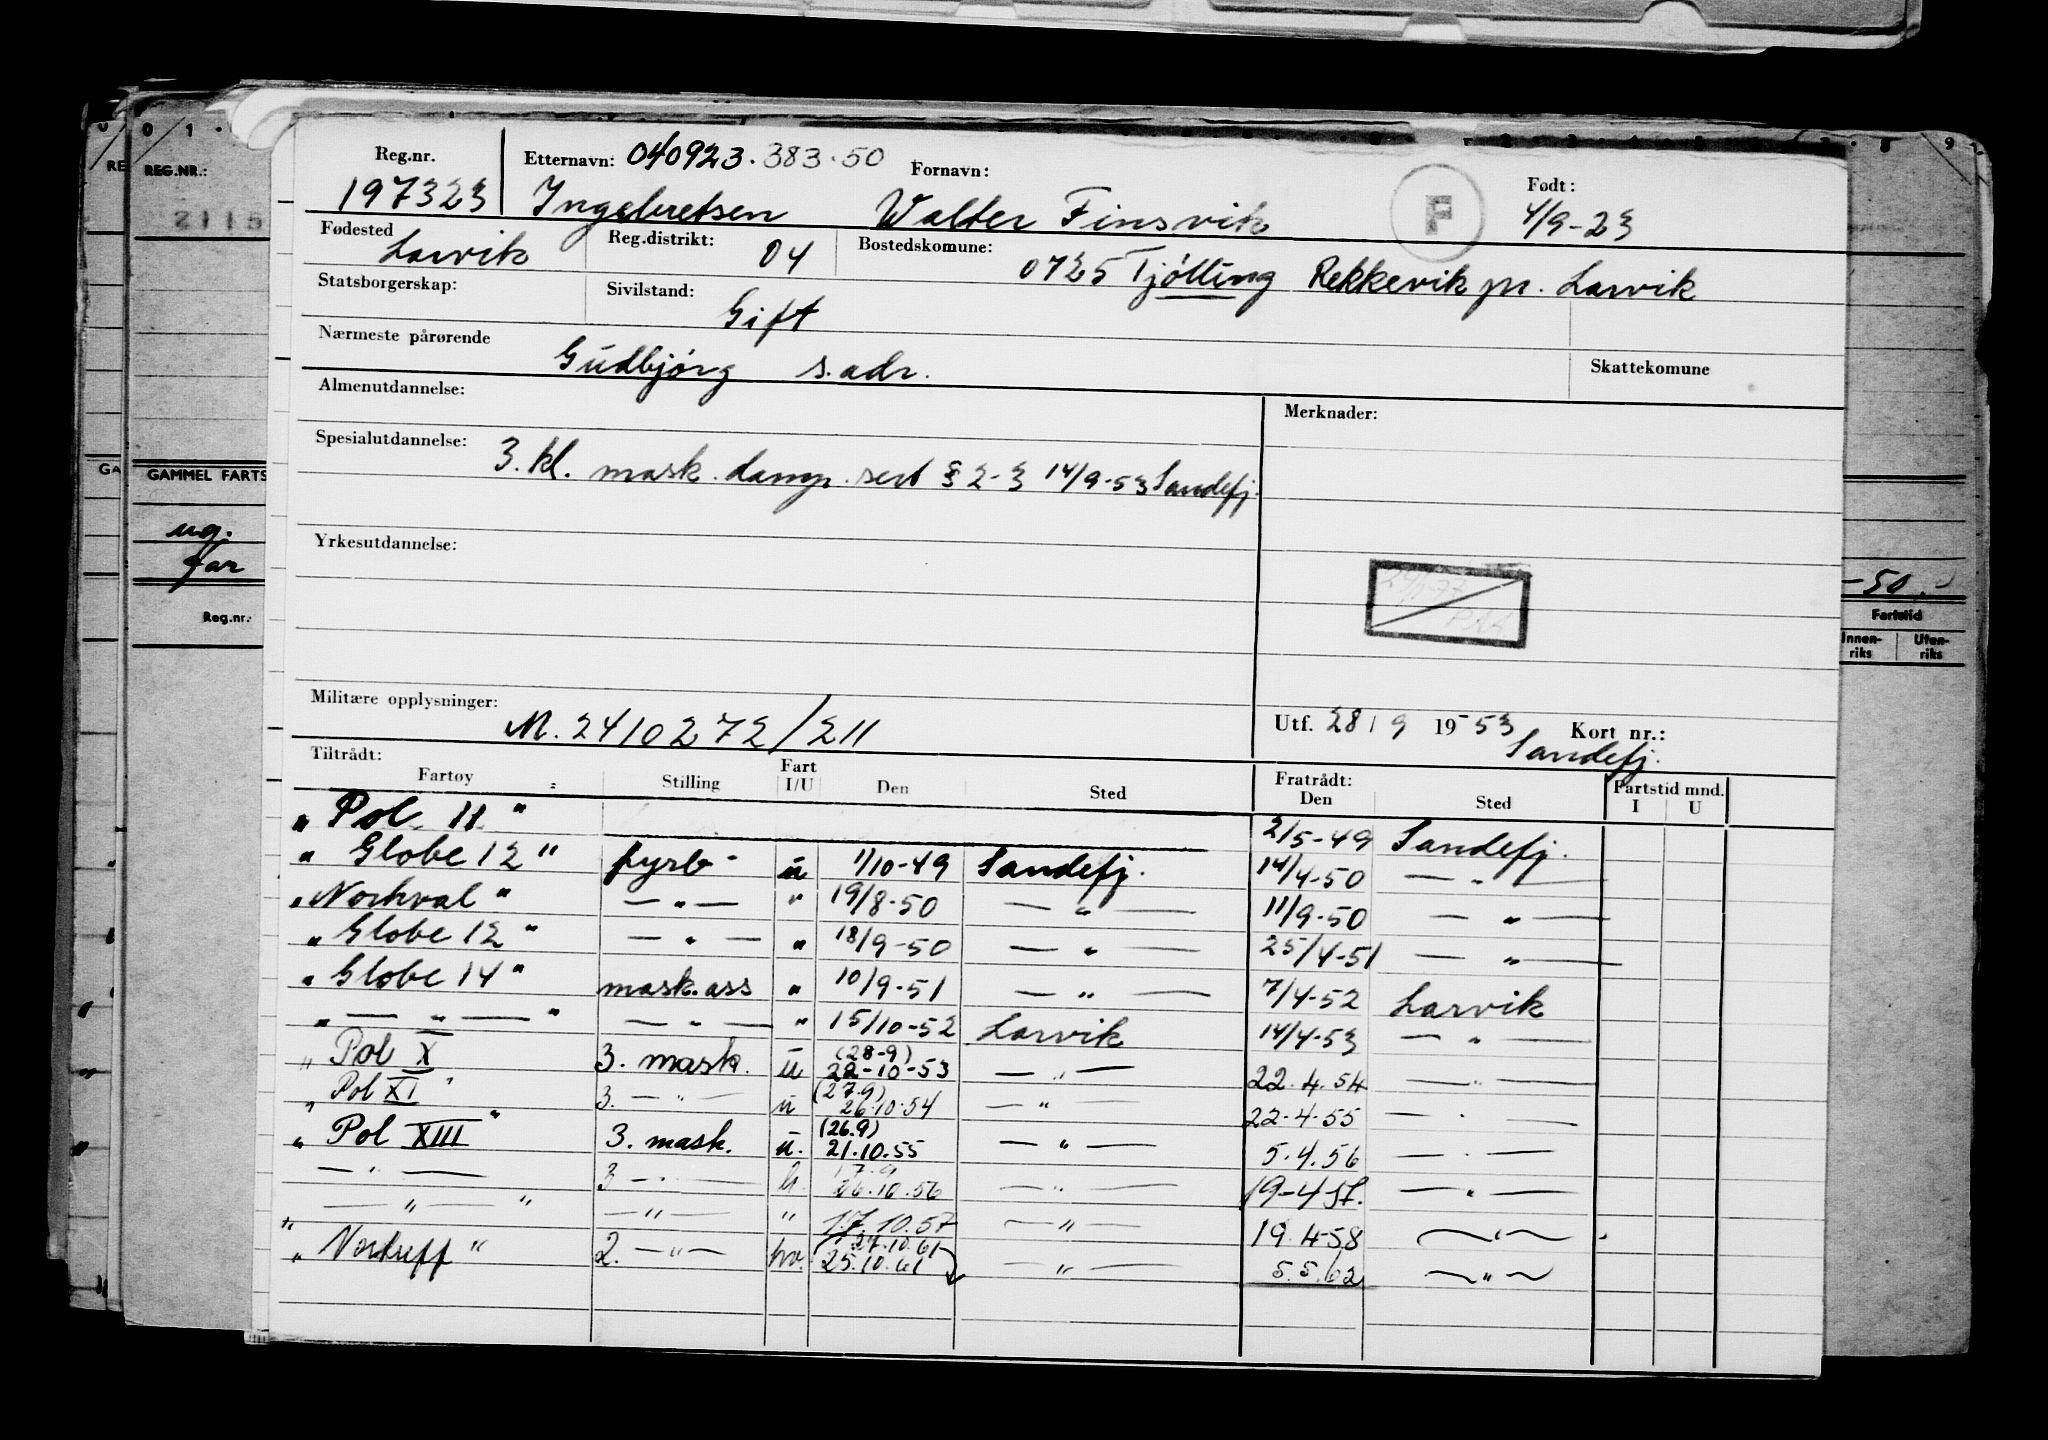 0 1 . 8 9
REG.NR.:
2115
GAMMEL FARTS
ug.
far
Reg.nr.
-50.-
Fartstid
Innen-riks Uten-riks
Reg.nr. Etternavn: 040923.383.50 Fornavn: F Født:
197323 Ingebretsen Walter Finsvik 4/9-23
Fødested Larvik Reg.distrikt: 04 Bostedskommune: 0725 Tjølling Rekkevik pr. Larvik
Statsborgerskap: Sivilstand: Gift
Nærmeste pårørende Gudbjørg s.adr. Skattekomune
Almenutdannelse: Merknader:
Spesialutdannelse: 3. kl. mask. damp. sert § 2-3 14/9-53 Sandefj.
Yrkesutdannelse:
Militære opplysninger: M. 2410272/211 Utf. 28/9 19-53 Kort nr.:
Sandefj.
Tiltrådt: Fart Fratrådt: Fartstid mnd.
Fartøy Stilling I/U Den Sted Den Sted I U
" Pol 11 " 2/5-49 Sandefj.
" Globe 12 " fyrb- u 1/10-49 Sandefj. 14/4-50 — " —
" Norhval " — " — " 19/8-50 — " — 11/9-50 — " —
" Globe 12 " — " — " 18/9-50 — " — 25/4-51 — " —
" Globe 14 " mask.ass " 10/9-51 — " — 7/4-52 Larvik
" — " — " — " — " 15/10-52 Larvik 14/4-53 — " —
" Pol X 3. mask. u (28-9) 22-10-53 — " — 22.4.54 — " —
" Pol XI " 3. — " — u (27.9) 26.10.54 — " — 22-4-55 — " —
" Pol XIII " 3. mask. u. (26.9) 21.10.55 — " — 5.4.56 — " —
— " — 3 — " — 26.10.56 — " — 19-4 57. — " —
— " — " — " — " 17.10.57 — " — 19.4-58 — " —
" Nortuff " 2. — " — hv. (27.10.61 25.10.61 — " — 5.5.62 — " —